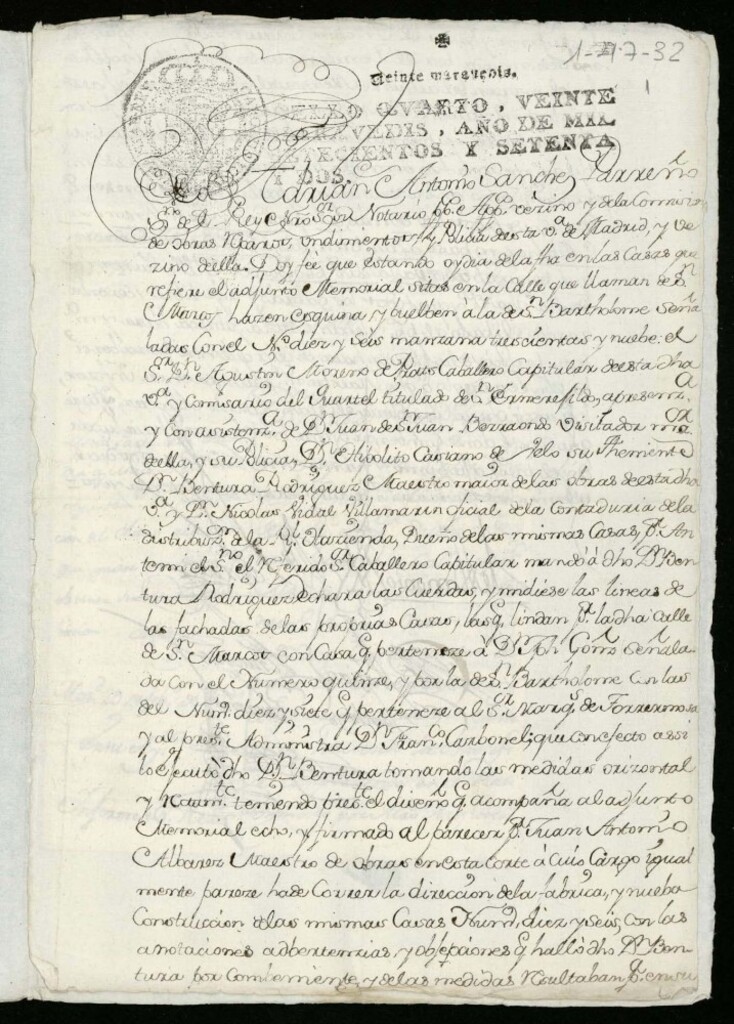 1-47-32
Veinte maravedis.
SELLO QVARTO, VEINTE
MARAVEDIS, AÑO DE MIL
SETECIENTOS Y SETENTA
Y DOS.
Adrian Antonio Sanchez Parreño
SSno. de el Rey Nro Sor Notario Appco. vezino y de la Comision
de obras Reparos, undimientos y Policia de esta Va. de Madrid, y ve
zino de ella. Doy fee que estando oy dia de la fha en las Casas que
refiere el adjunto Memorial sitas en la Calle que llaman de Sn.
Marcos hazen esquina, y buelben à la de Sn. Bartholome Seña
ladas con el No. diez y seis manzana trescientas y nuebe: el
Sr. Dn. Agustin Moreno de Prats Caballero Capitular de esta dha
Va. y Comisario del Quartel titulado de Sn. Ermenejildo, apresenza.
y con asistenza. de Dn. Juan de Sn. Juan Berraondo Visitador
de ella, y su Policia, Dn. Hipolito Casiano de Velo su Theniente
Dn. Bentura Rodriguez Maestro maior de las obras de esta dha
Va. y Dn. Nicolas Vidal Villamarin oficial de la Contaduria de la
distribuzn. de la Rl. Hazienda, Dueño de las mismas Casas, Pr. An
temi el Sno. el Referido Sr. Caballero Capitular mandò à dho Dn. Ben
tura Rodriguez echara las Cuerdas, y midiese las lineas de
las fachadas de las propias Casas, las q. lindan pr. la dha Calle
de Sn. Marcos con Casa q. perteneze à Dn. Jph Gonz. Señala
da con el Numero quinze, y por la de Sn. Bartholome con las
del Numo. diez y siete q. perteneze al Sr. Marqs. de Torrermosa
y al preste. Administra Dn. Franco. Carbonel; que con efecto assi
lo ejecutò dho Dn. Bentura tomando las medidas orizontal
y Rectamte. teniendo preste. el diseño q. acompaña al adjunto
Memorial echo, y firmado al parecer pr. Juan Antonio
Albarez Maestro de obras en esta Corte à Cuio Cargo igual
mente pareze hade Correr la direccion de la fabrica, y nueba
Construccion de las mismas Casas Numo. diez y seis, con las
anotaciones adbertenzias y obsepciones q. hallò dho Dn. Ben
tura por Combeniente, y de las medidas Resultaban qe. en su